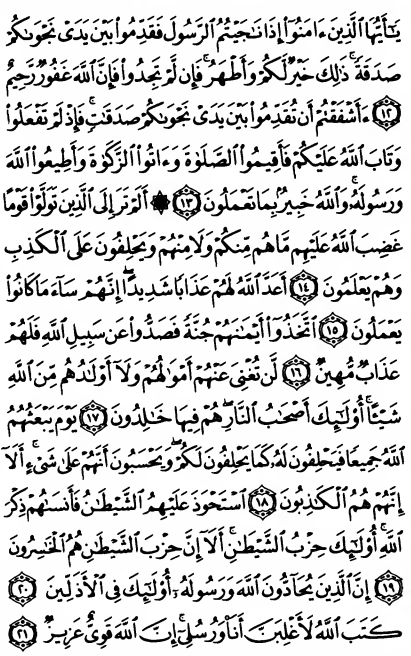 يَـٰٓأَيُّهَا ٱلَّذِينَ ءَامَنُوٓا۟ إِذَا نَـٰجَيْتُمُ ٱلرَّسُولَ فَقَدِّمُوا۟ بَيْنَ يَدَىْ نَجْوَىٰكُمْ
صَدَقَةً ۚ ذَٰلِكَ خَيْرٌ لَّكُمْ وَأَطْهَرُ ۚ فَإِن لَّمْ تَجِدُوا۟ فَإِنَّ ٱللَّهَ غَفُورٌ رَّحِيمٌ
١٢ ءَأَشْفَقْتُمْ أَن تُقَدِّمُوا۟ بَيْنَ يَدَىْ نَجْوَىٰكُمْ صَدَقَـٰتٍ ۚ فَإِذْ لَمْ تَفْعَلُوا۟
وَتَابَ ٱللَّهُ عَلَيْكُمْ فَأَقِيمُوا۟ ٱلصَّلَوٰةَ وَءَاتُوا۟ ٱلزَّكَوٰةَ وَأَطِيعُوا۟ ٱللَّهَ
وَرَسُولَهُۥ ۚ وَٱللَّهُ خَبِيرٌۢ بِمَا تَعْمَلُونَ ١٣ ۞ أَلَمْ تَرَ إِلَى ٱلَّذِينَ تَوَلَّوْا۟ قَوْمًا
غَضِبَ ٱللَّهُ عَلَيْهِم مَّا هُم مِّنكُمْ وَلَا مِنْهُمْ وَيَحْلِفُونَ عَلَى ٱلْكَذِبِ
وَهُمْ يَعْلَمُونَ ١٤ أَعَدَّ ٱللَّهُ لَهُمْ عَذَابًا شَدِيدًا ۖ إِنَّهُمْ سَآءَ مَا كَانُوا۟
يَعْمَلُونَ ١٥ ٱتَّخَذُوٓا۟ أَيْمَـٰنَهُمْ جُنَّةً فَصَدُّوا۟ عَن سَبِيلِ ٱللَّهِ فَلَهُمْ
عَذَابٌ مُّهِينٌ ١٦ لَّن تُغْنِىَ عَنْهُمْ أَمْوَٰلُهُمْ وَلَآ أَوْلَـٰدُهُم مِّنَ ٱللَّهِ
شَيْـًٔا ۚ أُو۟لَـٰٓئِكَ أَصْحَـٰبُ ٱلنَّارِ ۖ هُمْ فِيهَا خَـٰلِدُونَ ١٧ يَوْمَ يَبْعَثُهُمُ
ٱللَّهُ جَمِيعًا فَيَحْلِفُونَ لَهُۥ كَمَا يَحْلِفُونَ لَكُمْ ۖ وَيَحْسَبُونَ أَنَّهُمْ عَلَىٰ شَىْءٍ ۚ أَلَآ
إِنَّهُمْ هُمُ ٱلْكَـٰذِبُونَ ١٨ ٱسْتَحْوَذَ عَلَيْهِمُ ٱلشَّيْطَـٰنُ فَأَنسَىٰهُمْ ذِكْرَ
ٱللَّهِ ۚ أُو۟لَـٰٓئِكَ حِزْبُ ٱلشَّيْطَـٰنِ ۚ أَلَآ إِنَّ حِزْبَ ٱلشَّيْطَـٰنِ هُمُ ٱلْخَـٰسِرُونَ
١٩ إِنَّ ٱلَّذِينَ يُحَآدُّونَ ٱللَّهَ وَرَسُولَهُۥٓ أُو۟لَـٰٓئِكَ فِى ٱلْأَذَلِّينَ ٢٠
كَتَبَ ٱللَّهُ لَأَغْلِبَنَّ أَنَا۠ وَرُسُلِىٓ ۚ إِنَّ ٱللَّهَ قَوِىٌّ عَزِيزٌ ٢١